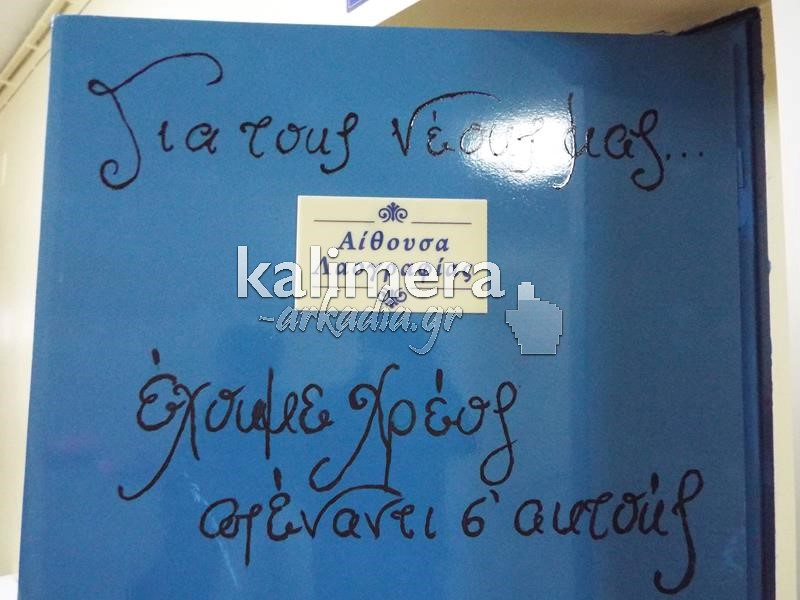 Για τους νέους μας...
Αίθουσα
Λαογραφίας
kalimera
-arkadia.gr
έχουμε χρέος
απέναντι σ' αυτούς